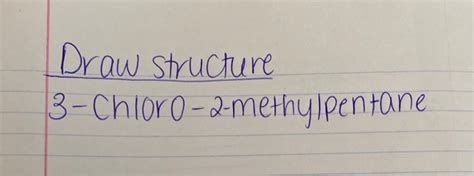 Draw structure
3-Chloro-2-methylpentane